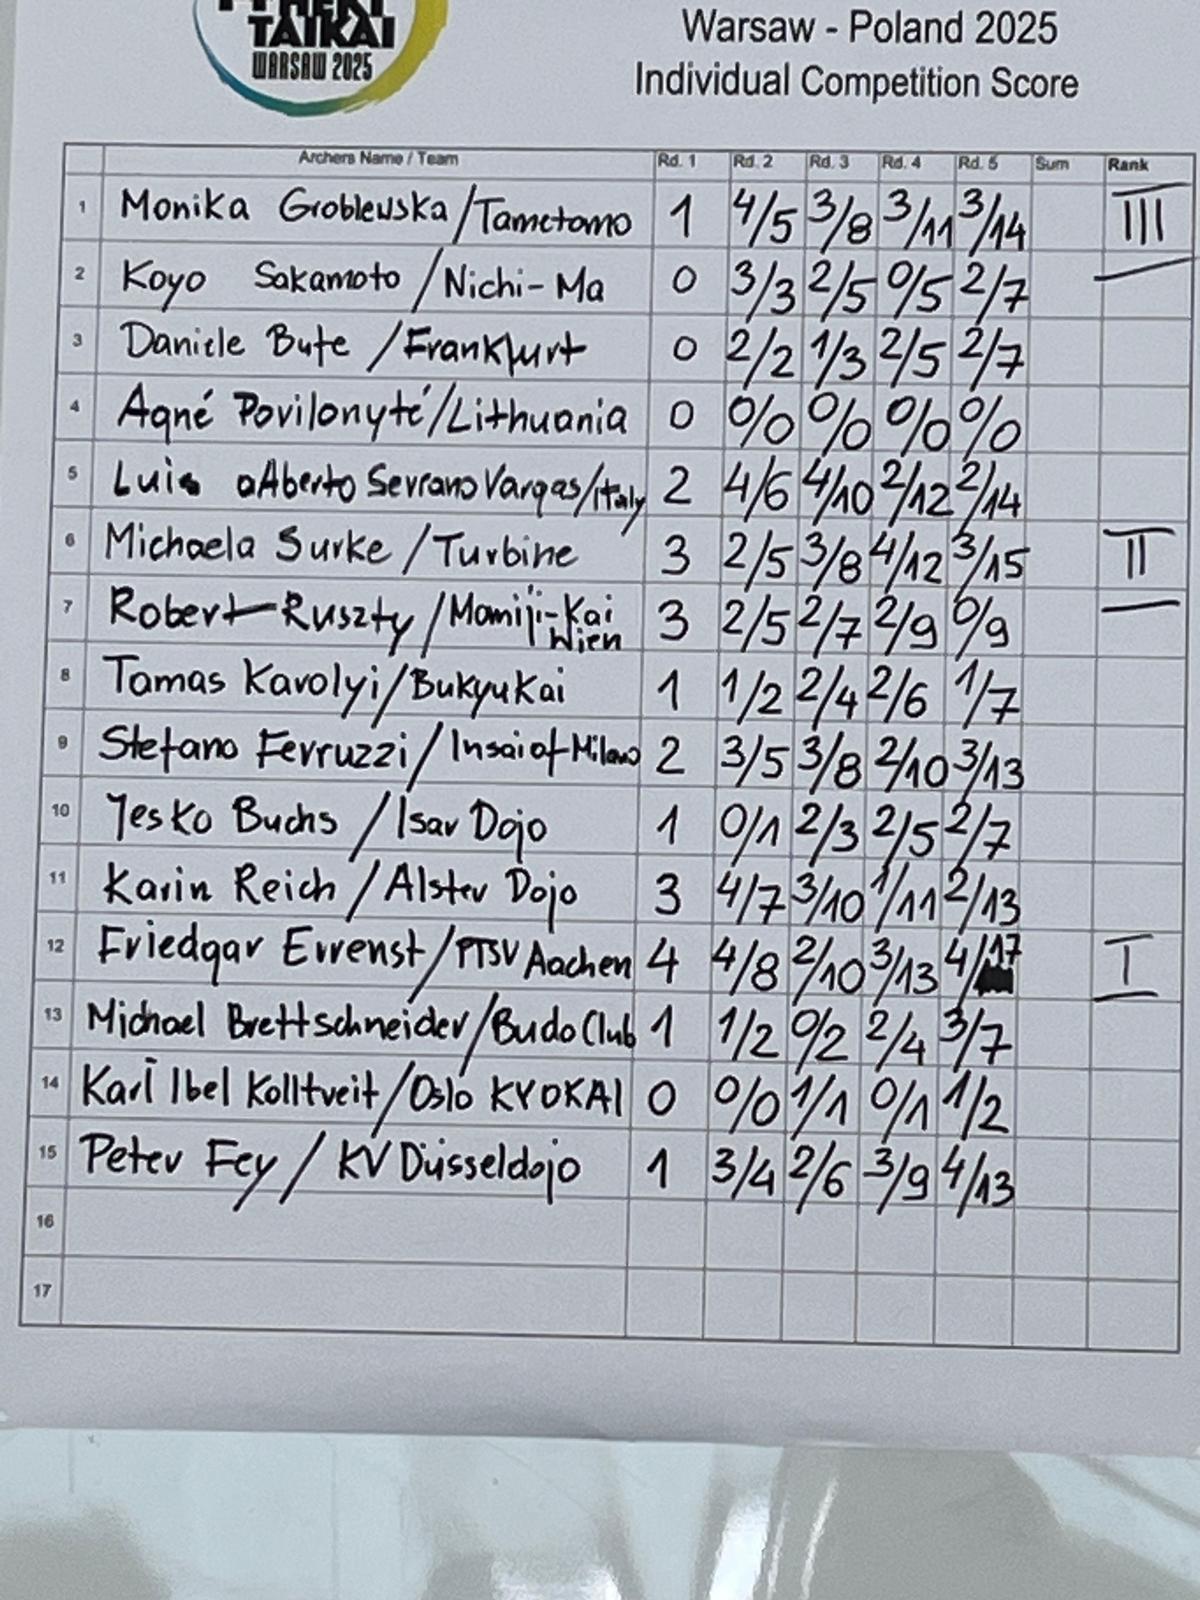 TAIKAI
WARSAW 2025
Warsaw - Poland 2025
Individual Competition Score
Archers Name / Team Rd. 1 Rd. 2 Rd. 3 Rd. 4 Rd. 5 Sum Rank
1 Monika Groblewska/Tametomo 1 4/5 3/8 3/11 3/14 III
2 Koyo Sakamoto /Nichi-Ma 0 3/3 2/5 0/5 2/7
3 Daniele Bute /Frankfurt 0 2/2 1/3 2/5 2/7
4 Agné Povilonyté/Lithuania 0 0/0 0/0 0/0 0/0
5 Luis aAberto Serrano Vargas/Italy 2 4/6 4/10 2/12 2/14
6 Michaela Surke /Turbine 3 2/5 3/8 4/12 3/15 II
7 Robert Ruszty /Momiji-Kai Wien 3 2/5 2/7 2/9 0/9
8 Tamas Karolyi/BukyuKai 1 1/2 2/4 2/6 1/7
9 Stefano Ferruzzi/Insai of Milano 2 3/5 3/8 2/10 3/13
10 Yesko Buchs /Isar Dojo 1 0/1 2/3 2/5 2/7
11 Karin Reich /Alster Dojo 3 4/7 3/10 1/11 2/13
12 Friedgar Errenst/PTSV Aachen 4 4/8 2/10 3/13 4/17 I
13 Michael Brettschneider/Budo Club 1 1/2 0/2 2/4 3/7
14 Karl Ibel Kolltveit/Oslo KYOKAI 0 0/0 1/1 0/1 1/2
15 Peter Fey / KV Düsseldojo 1 3/4 2/6 3/9 4/13
16
17